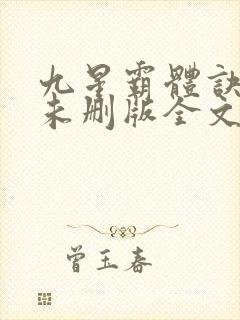 九星霸體訣
未刪版全文
曾玉春